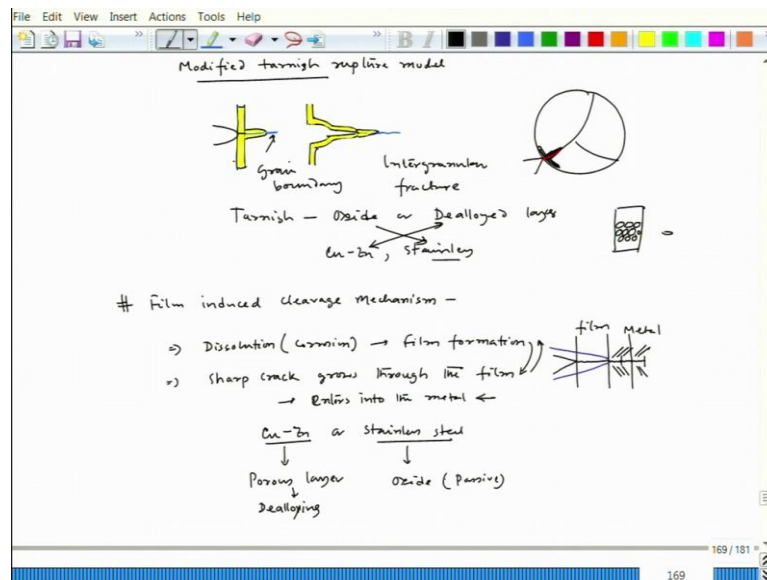 File Edit View Insert Actions Tools Help
» B I »
Modified tarnish rupture model
Grain boundary
Intergranular fracture
Tarnish – Oxide or Dealloyed layer
Cu-Zn, Stainless
# Film induced cleavage mechanism –
film Metal
⇒ Dissolution (corrosion) → Film formation
⇒ Sharp crack grows through the film
→ Enters into the metal ←
Cu-Zn or Stainless steel
↓ ↓
Porous layer Oxide (Passive)
↓
Dealloying
169 / 181
169